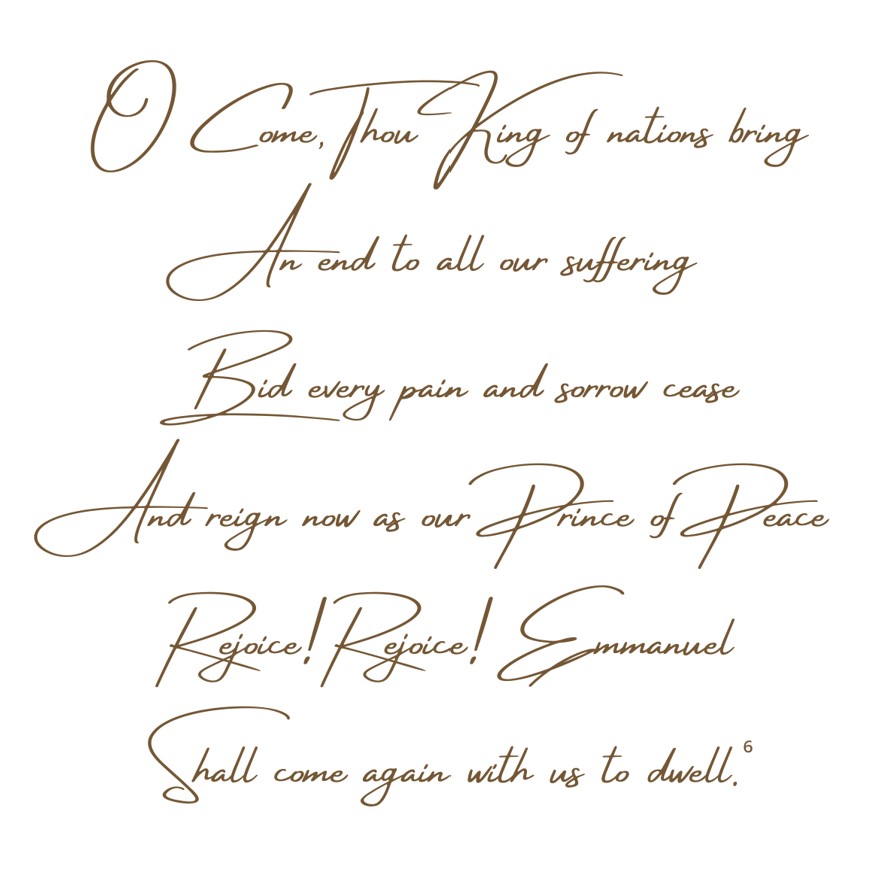 O Come, Thou King of nations bring
An end to all our suffering
Bid every pain and sorrow cease
And reign now as our Prince of Peace
Rejoice! Rejoice! Emmanuel
Shall come again with us to dwell.⁶